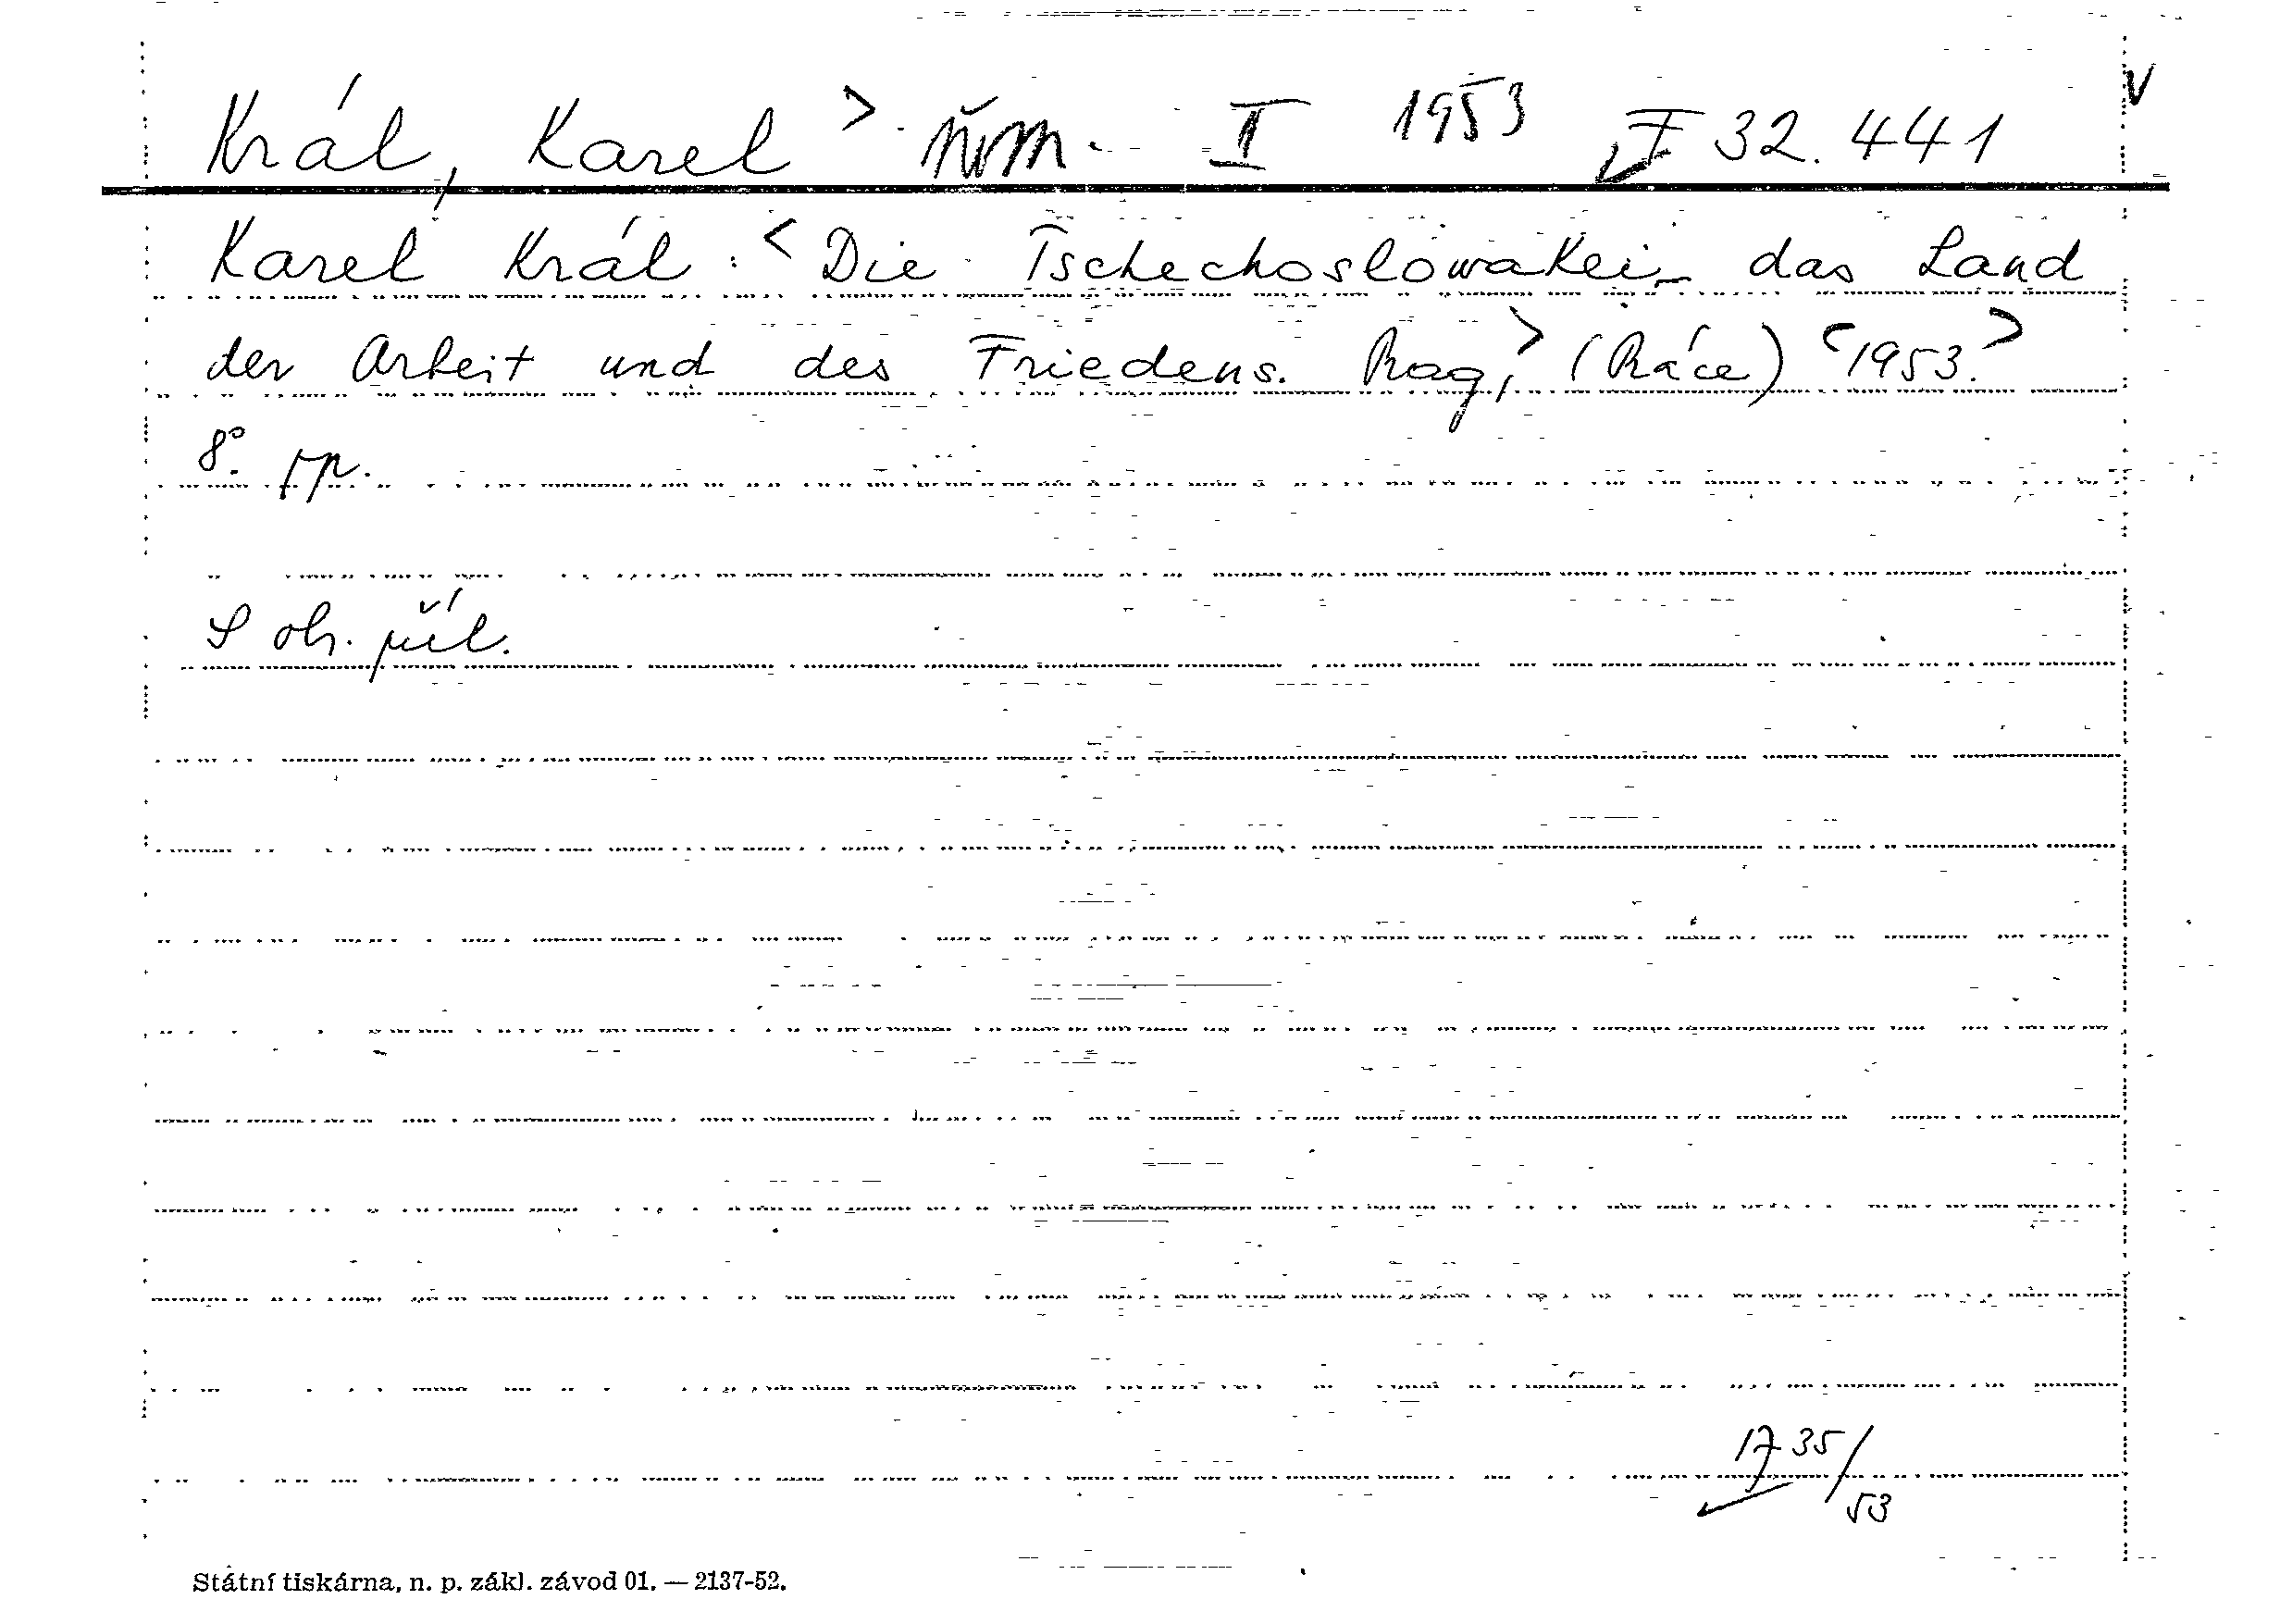 Král, Karel > něm. I 1953 F 32.441 V
Karel Král: < Die Tschechoslowakei - das Land
der Arbeit und des Friedens. Prag, > (Práce) < 1953. >
8°. sp.
S obr. příl.
1735/53
Státní tiskárna, n. p. zákl. závod 01. — 2137-52.